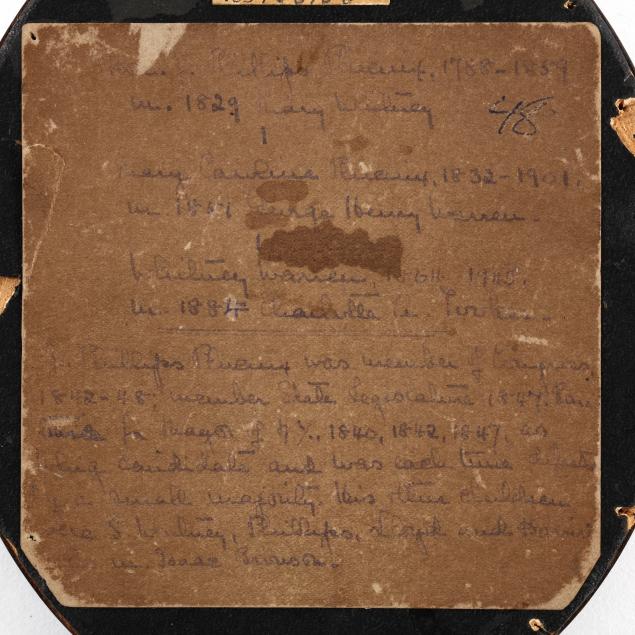 J. Phillips Phoenix, 1788-1859
m. 1829 Mary Whitney
48
Mary Caroline Phoenix, 1832-1901.
m. 1851 George Henry Warren.
Whitney Warren, 1864-1943.
m. 1884 Charlotte A. Tooker.
J. Phillips Phoenix was member of Congress,
1842-48. member State Legislature 1847.
for Mayor of N.Y., 1840, 1842, 1847, as
Whig candidate and was each time defeated
by a small majority. His other children
were S. Whitney, Phillips, Lloyd and
m. Isaac Bronson.